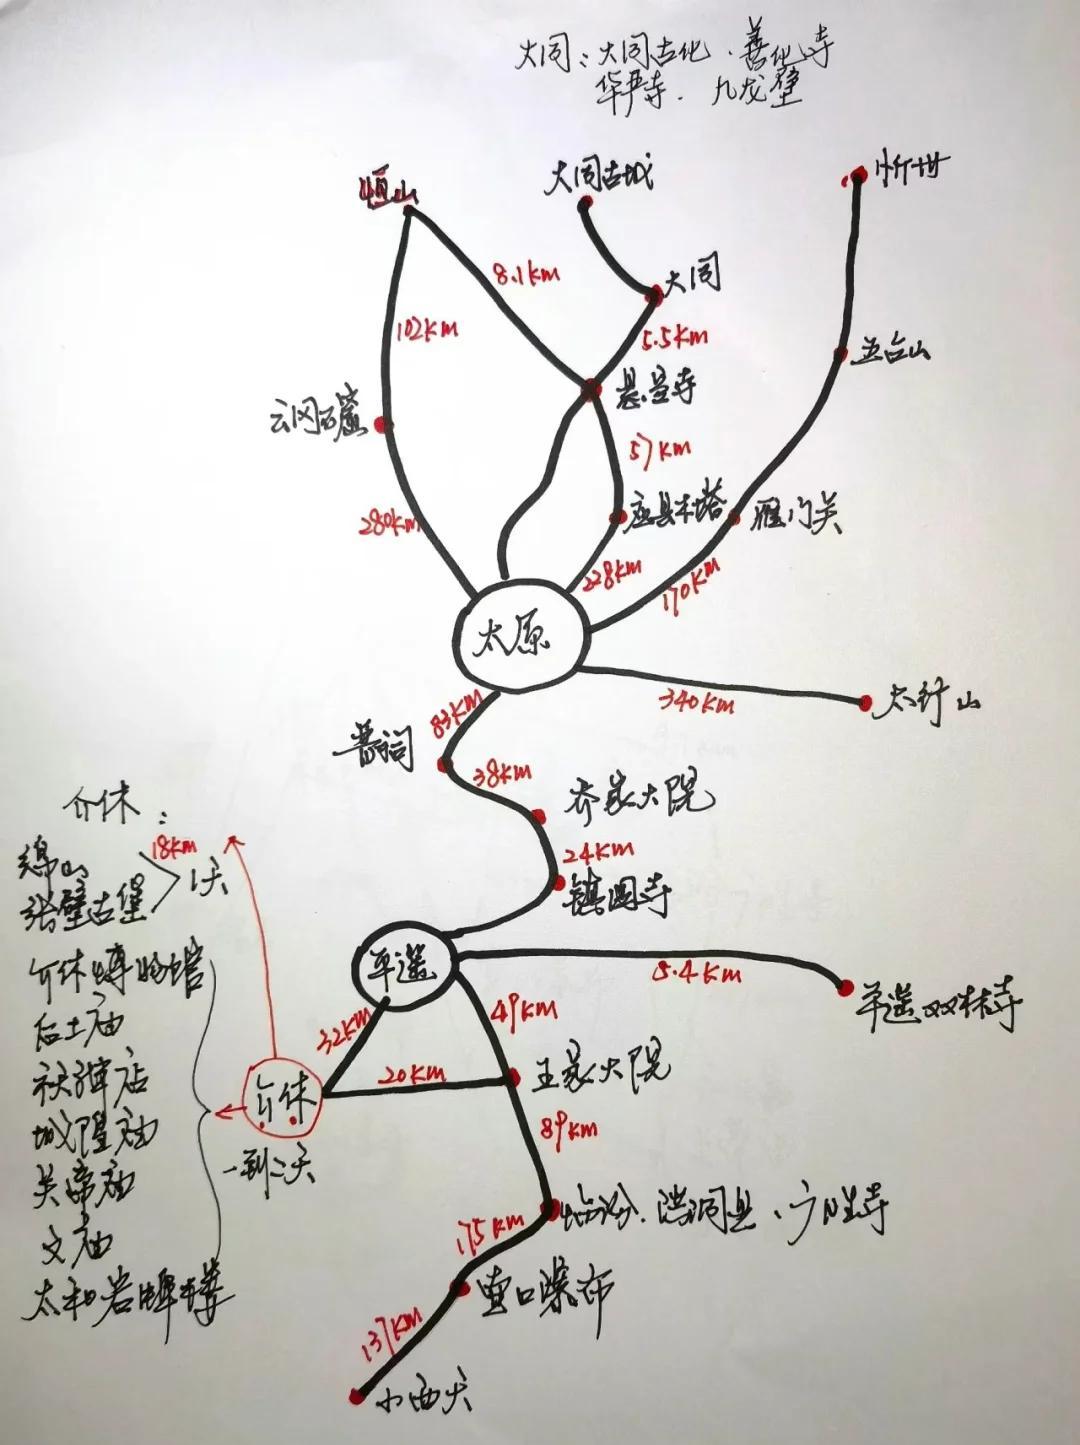 大同：大同古化·善化寺
华严寺·九龙壁
恒山
大同古城
忻州
8.1km
大同
102km
5.5km
五台山
悬空寺
云冈石窟
57km
应县木塔
雁门关
280km
228km
170km
太原
340km
太行山
83km
晋祠
38km
乔家大院
介休：
24km
18km
绵山
1天
镇国寺
张壁古堡
平遥
介休博物馆
5.4km
平遥双林寺
49km
后土庙
32km
王家大院
20km
祆神庙
介休
城隍庙
89km
一到二天
关帝庙
临汾·洪洞县·广胜寺
文庙
175km
壶口瀑布
太和岩牌楼
137km
小西天